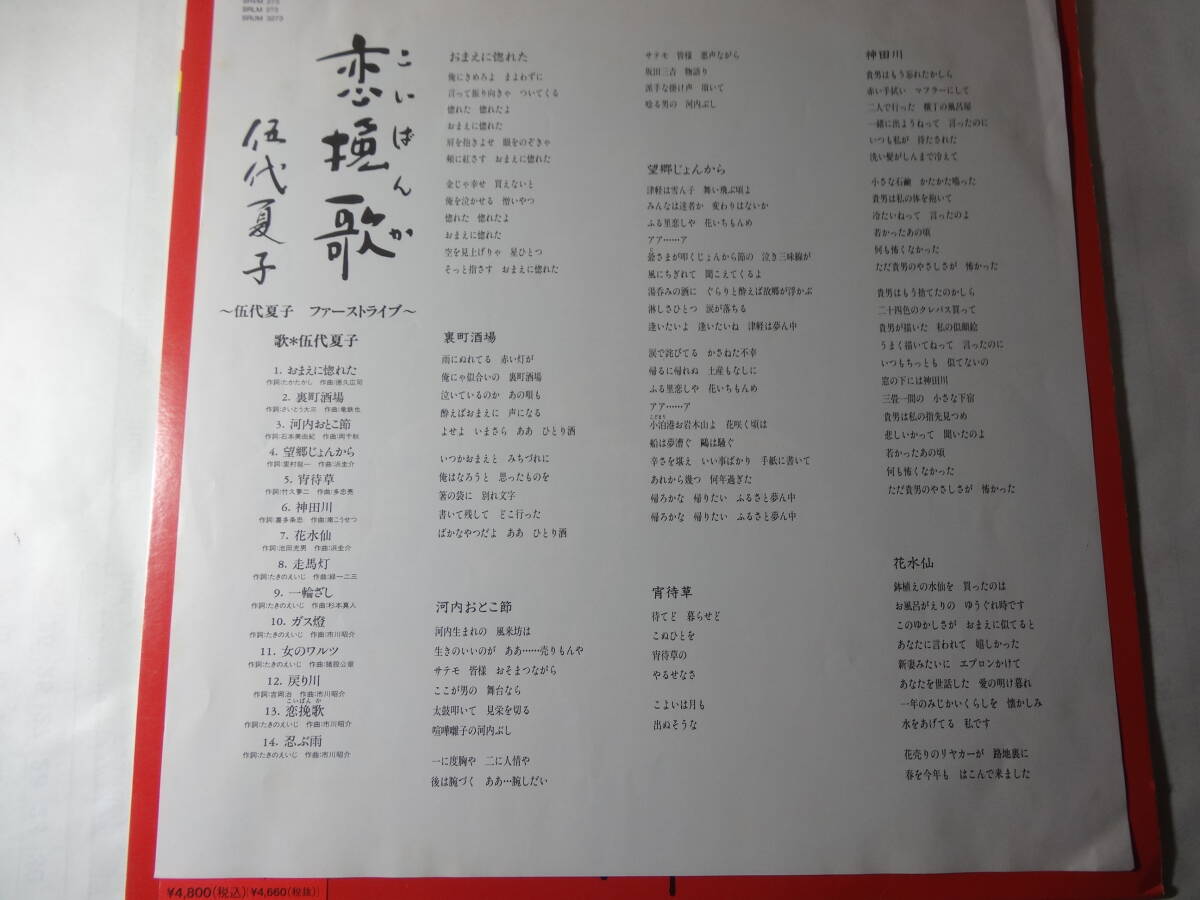 SRLM 273
SRUM 3273
恋挽歌
こいばんか
伍代夏子
～伍代夏子　ファーストライブ～
歌＊伍代夏子
1. おまえに惚れた
作詞:たかたかし　作曲:徳久広司
2. 裏町酒場
作詞:さいとう大三　作曲:竜鉄也
3. 河内おとこ節
作詞:石本美由紀　作曲:岡千秋
4. 望郷じょんから
作詞:里村龍一　作曲:浜圭介
5. 宵待草
作詞:竹久夢二　作曲:多忠亮
6. 神田川
作詞:喜多条忠　作曲:南こうせつ
7. 花水仙
作詞:池田充男　作曲:浜圭介
8. 走馬灯
作詞:たきのえいじ　作曲:緑一二三
9. 一輪ざし
作詞:たきのえいじ　作曲:杉本真人
10. ガス燈
作詞:たきのえいじ　作曲:市川昭介
11. 女のワルツ
作詞:たきのえいじ　作曲:猪股公章
12. 戻り川
作詞:吉岡治　作曲:市川昭介
こいばんか
13. 恋挽歌
作詞:たきのえいじ　作曲:市川昭介
14. 忍ぶ雨
作詞:たきのえいじ　作曲:市川昭介
おまえに惚れた
俺にきめろよ　まよわずに
言って振り向きゃ　ついてくる
惚れた　惚れたよ
おまえに惚れた
肩を抱きよせ　眼をのぞきゃ
頬に紅さす　おまえに惚れた
金じゃ幸せ　買えないと
俺を泣かせる　憎いやつ
惚れた　惚れたよ
おまえに惚れた
空を見上げりゃ　星ひとつ
そっと指さす　おまえに惚れた
裏町酒場
雨にぬれてる　赤い灯が
俺にゃ似合いの　裏町酒場
泣いているのか　あの唄も
酔えばおまえに　声になる
よせよ　いまさら　ああ　ひとり酒
いつかおまえと　みちづれに
俺はなろうと　思ったものを
箸の袋に　別れ文字
書いて残して　どこ行った
ばかなやつだよ　ああ　ひとり酒
河内おとこ節
河内生まれの　風来坊は
生きのいいのが　ああ……売りもんや
サテモ　皆様　おそまつながら
ここが男の　舞台なら
太鼓叩いて　見栄を切る
喧嘩囃子の河内ぶし
一に度胸や　二に人情や
後は腕づく　ああ…腕しだい
サテモ　皆様　悪声ながら
坂田三吉　物語り
派手な掛け声　頂いて
唸る男の　河内ぶし
望郷じょんから
津軽は雪ん子　舞い飛ぶ頃よ
みんなは達者か　変わりはないか
ふる里恋しや　花いちもんめ
アア……ア
爺さまが叩くじょんから節の　泣き三味線が
風にちぎれて　聞こえてくるよ
湯呑みの酒に　ぐらりと酔えば故郷が浮かぶ
淋しさひとつ　涙が落ちる
逢いたいよ　逢いたいね　津軽は夢ん中
涙で詫びてる　かさねた不幸
帰るに帰れぬ　土産もなしに
ふる里恋しや　花いちもんめ
アア……ア
こどまり
小泊港お岩木山よ　花咲く頃は
船は夢漕ぐ　鴎は騒ぐ
辛さを堪え　いい事ばかり　手紙に書いて
あれから幾つ　何年過ぎた
帰ろかな　帰りたい　ふるさと夢ん中
帰ろかな　帰りたい　ふるさと夢ん中
宵待草
待てど　暮らせど
こぬひとを
宵待草の
やるせなさ
こよいは月も
出ぬそうな
神田川
貴男はもう忘れたかしら
赤い手拭い　マフラーにして
二人で行った　横丁の風呂屋
一緒に出ようねって　言ったのに
いつも私が　待たされた
洗い髪がしんまで冷えて
小さな石鹸　かたかた鳴った
貴男は私の体を抱いて
冷たいねって　言ったのよ
若かったあの頃
何も怖くなかった
ただ貴男のやさしさが　怖かった
貴男はもう捨てたのかしら
二十四色のクレパス買って
貴男が描いた　私の似顔絵
うまく描いてねって　言ったのに
いつもちっとも　似てないの
窓の下には神田川
三畳一間の　小さな下宿
貴男は私の指先見つめ
悲しいかって　聞いたのよ
若かったあの頃
何も怖くなかった
ただ貴男のやさしさが　怖かった
花水仙
鉢植えの水仙を　買ったのは
お風呂がえりの　ゆうぐれ時です
このゆかしさが　おまえに似てると
あなたに言われて　嬉しかった
新妻みたいに　エプロンかけて
あなたを世話した　愛の明け暮れ
一年のみじかいくらしを　懐かしみ
水をあげてる　私です
花売りのリヤカーが　路地裏に
春を今年も　はこんで来ました
¥4,800(税込) ¥4,660(税抜)